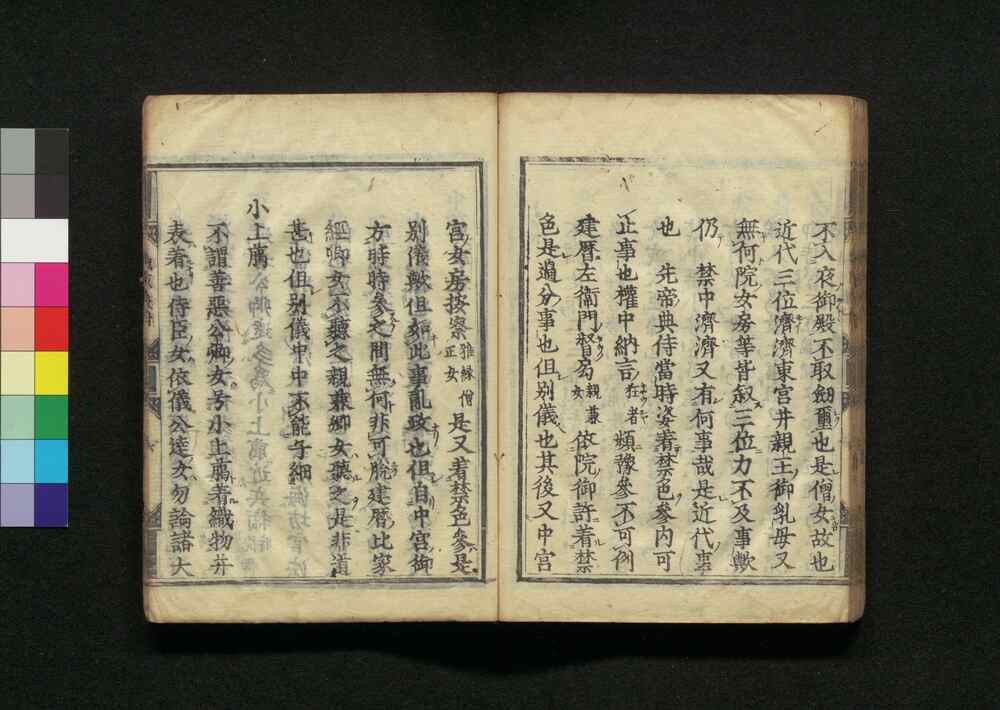 不入夜御殿不取劔璽也是僧女故也
近代三位濟濟東宮井親王御乳母又
無何院女房等皆叙三位力不及事歟
仍 禁中濟濟又有何事哉是近代事
也 先帝典侍當時姿着禁色參内可
正事也權中納言在者頻豫參不可例
建暦左衛門督局親兼女依院御許着禁
色是過分事也但別儀也其後又中宮
宮女房按察雅縁僧正女是又着禁色參是
別儀歟但如此事亂政也但自中宮御
方時時參之間無何非可脱建暦比家
經卿女不聽之親兼卿女聽之是非道
甚也但別儀中中不能子細
小上﨟
不謂善惡公卿女号小上﨟着織物井
表着也侍臣女依儀公達女勿論諸大